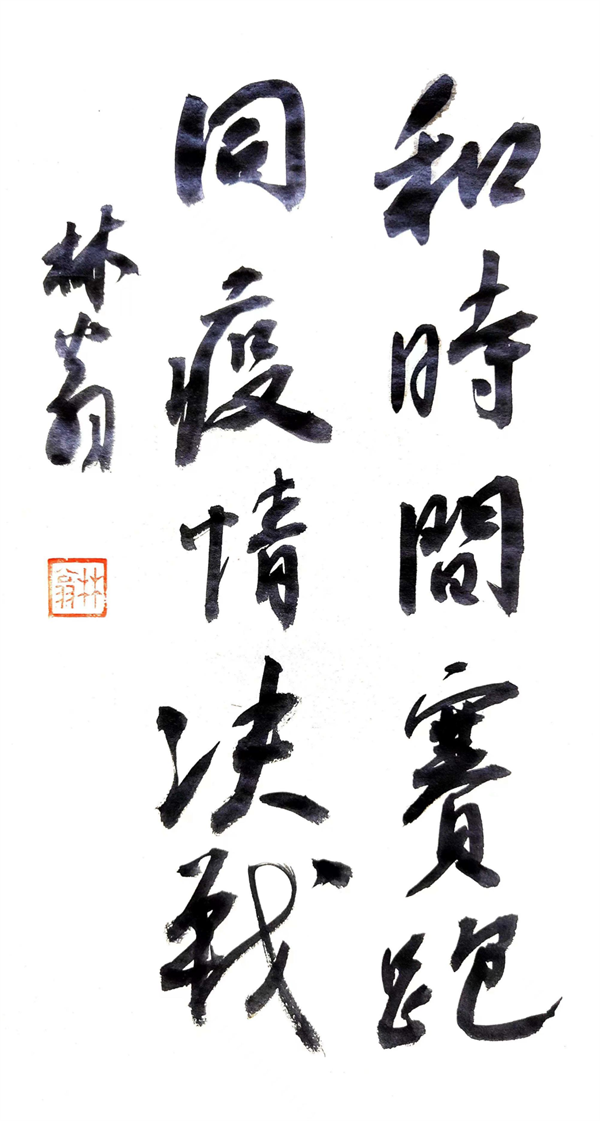 和時間賽跑
同疫情决戰
林翁
林翁